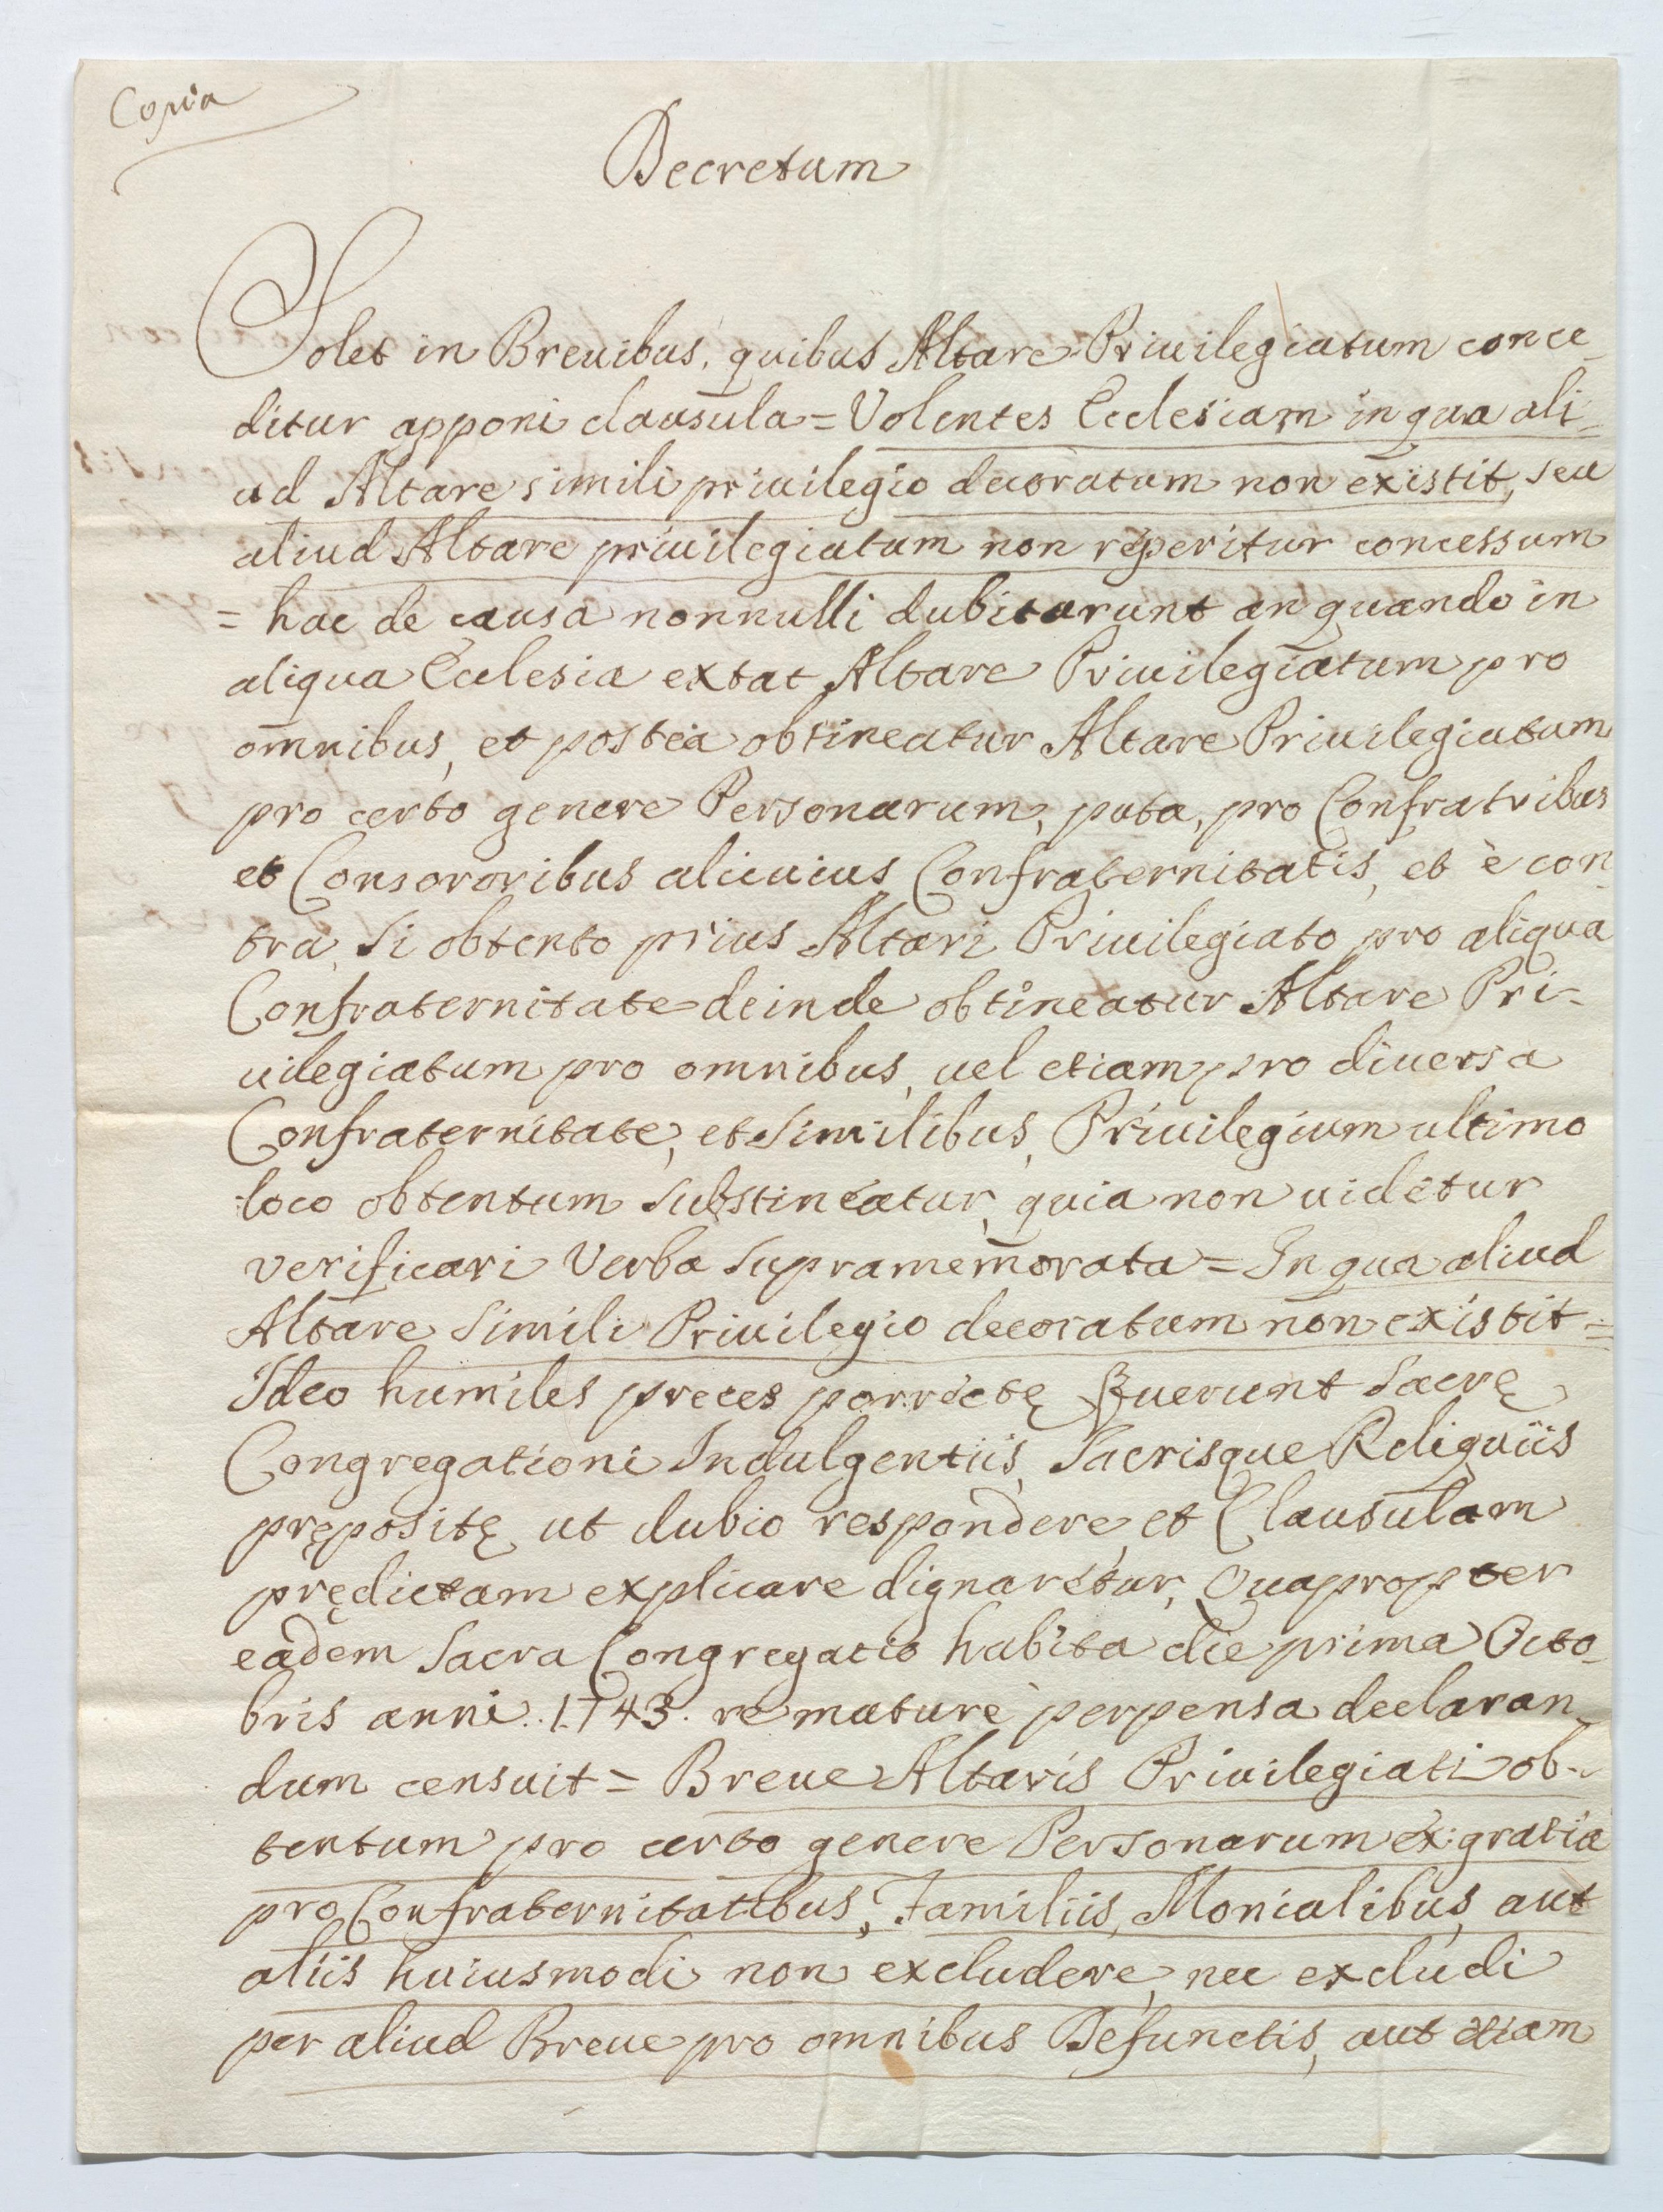 Copia
Decretum
Solet in Breuibus, quibus Altare Priuilegiatum conce-
ditur apponi clausula = Volentes Ecclesiam in qua ali-
ud Altare simili priuilegio decoratum non existit, seu
aliud Altare priuilegiatum non reperitur concessum
= hac de causa nonnulli dubitarunt an quando in
aliqua Ecclesia extat Altare Priuilegiatum pro
omnibus, et postea obtineatur Altare Priuilegiatum
pro certo genere Personarum, puta, pro Confratribus
et Consororibus alicuius Confraternitatis, et è con-
tra, Si obtento prius Altari Priuilegiato pro aliqua
Confraternitate deinde obtineatur Altare Pri-
uilegiatum pro omnibus, uel etiam pro diuersa
Confraternitate, et Similibus, Priuilegium ultimo
loco obtentum Substineatur, quia non uidetur
verificari Verba Supramemorata = In qua aliud
Altare Simili Priuilegio decoratum non existit =
Ideo humiles preces porrectę fuerunt Sacrę
Congregationi Indulgentiis, Sacrisque Reliquiis
prępositę ut dubio respondere, et Clausulam
prędictam explicare dignaretur, Quapropter
eadem Sacra Congregatio habita die prima Octo-
bris anni. 1743. re maturè perpensa declaran-
dum censuit = Breue Altaris Priuilegiati ob-
tentum pro certo genere Personarum ex: gratia
pro Confraternitatibus, Familiis, Monialibus, aut
aliis huiusmodi non excludere, nec excludi
per aliud Breue pro omnibus Defunctis, aut etiam